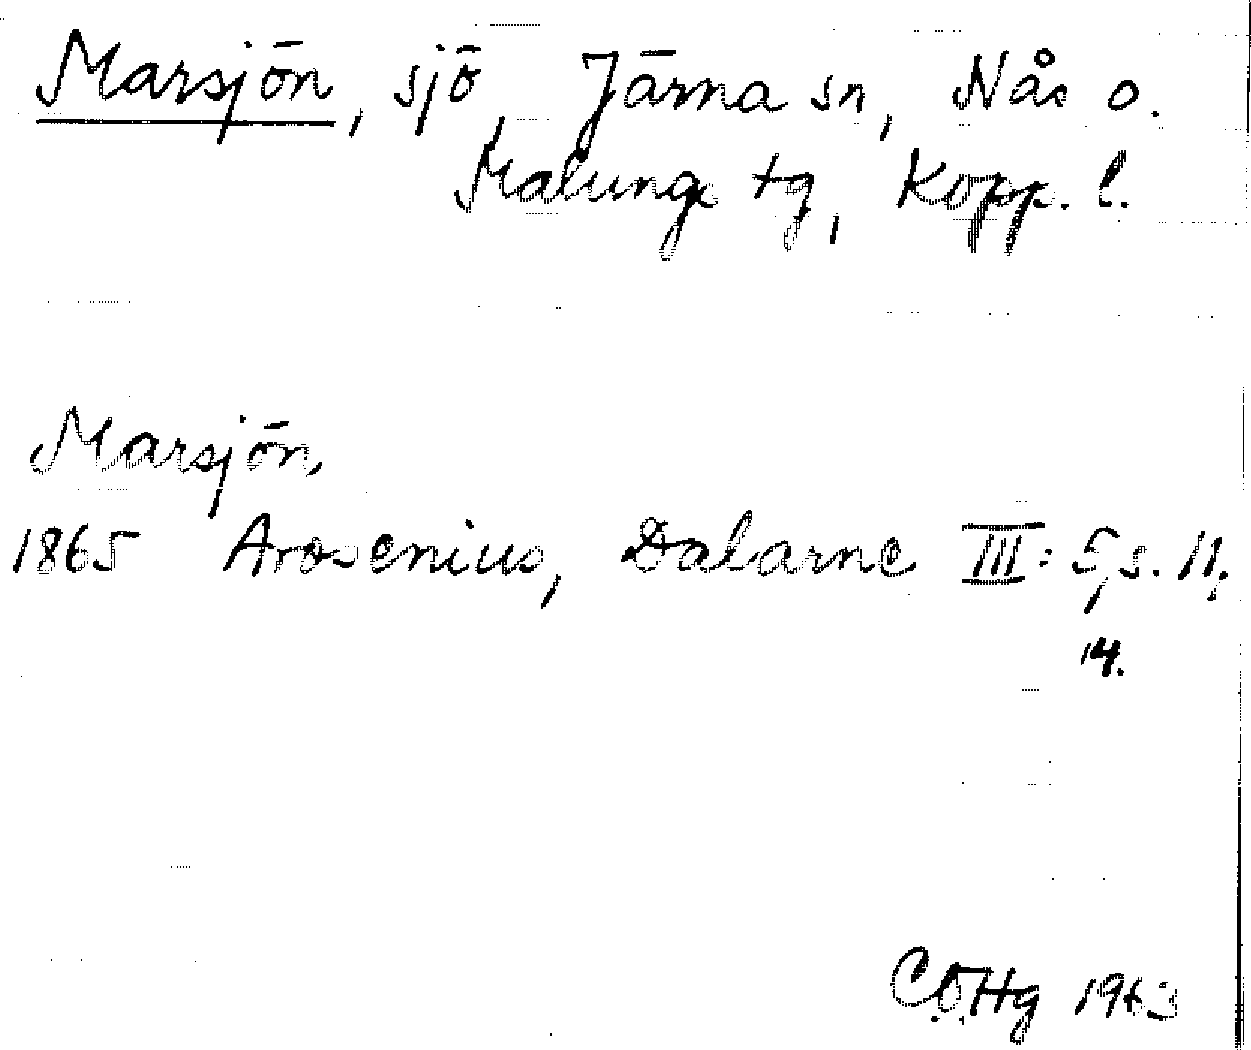 Marsjön, sjö, Järna sn, Nås o.
Malungs tg, Kopp. l.
Marsjön,
1865 Arosenius, Dalarne III: 5, s. 11,
14.
C.Ö.Hg 1963